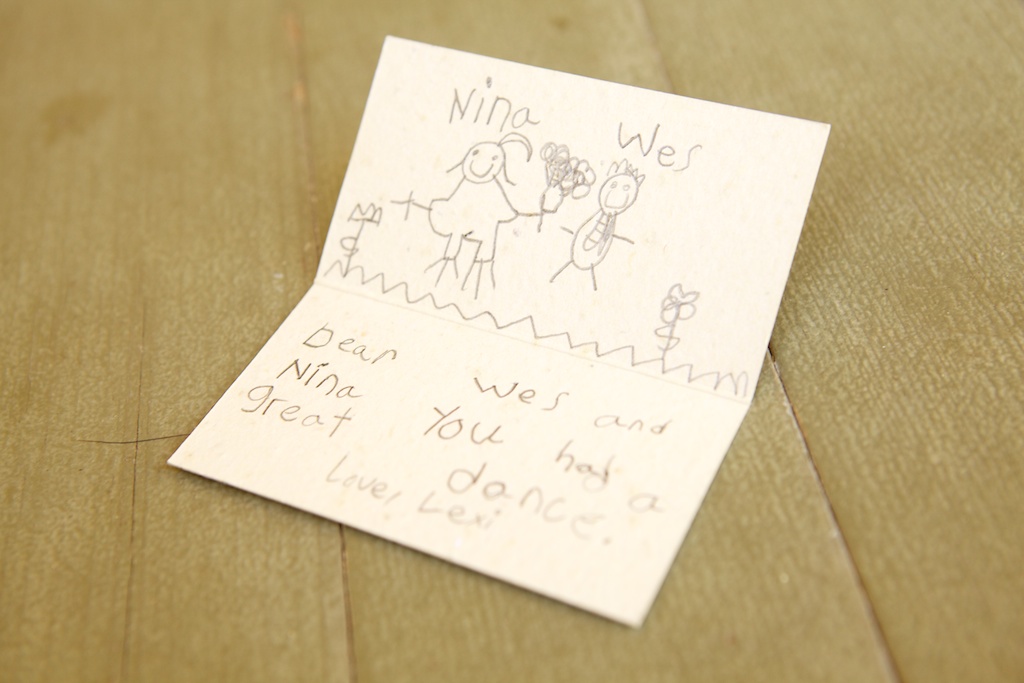 Nina Wes
Dear Wes and
Nina You had a
great dance.
Love, Lexi